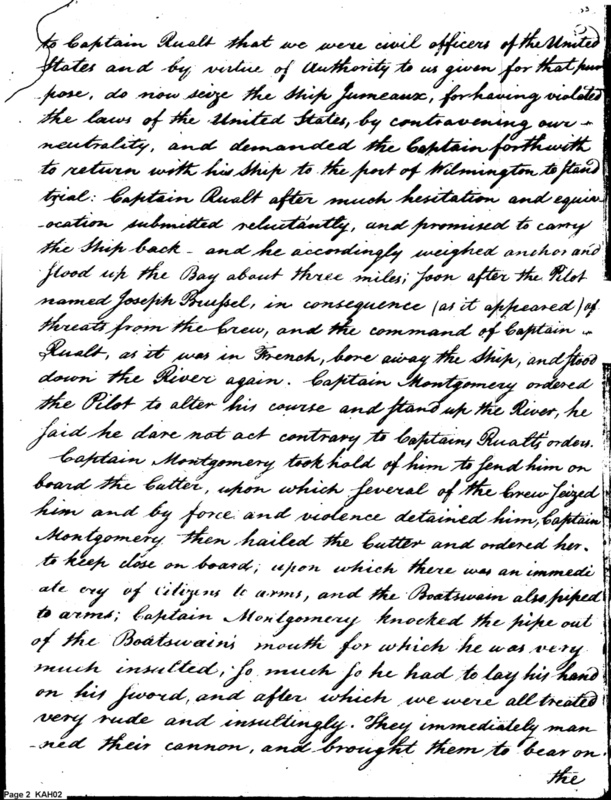 to Captain Rualt that we were civil officers of the United
States and by virtue of Authority to us given for that pur
pose, do now seize the Ship Jumeaux, for having violated
the laws of the United States, by contravening our
neutrality, and demanded the Captain forthwith
to return with his Ship to the port of Wilmington to stand
trial: Captain Rualt after much hesitation and equiv
-ocation submitted reluctantly, and promised to carry
the Ship back - and he accordingly weighed anchor and
stood up the Bay about three miles; soon after the Pilot
named Joseph Brussel, in consequence (as it appeared) of
threats from the Crew, and the command of Captain
Rualt, as it was in French, bore away the Ship, and stood
down the River again. Captain Montgomery ordered
the Pilot to alter his course and stand up the River, he
said he dare not act contrary to Captains Rualts orders.
Captain Montgomery took hold of him to send him on
board the Cutter, upon which several of the Crew seized
him and by force and violence detained him, Captain
Montgomery then hailed the Cutter and ordered her
to keep close on board; upon which there was an immedi
ate cry of citizens to arms, and the Boatswain also piped
to arms; Captain Montgomery knocked the pipe out
of the Boatswain's mouth for which he was very
much insulted, so much so he had to lay his hand
on his sword, and after which we were all treated
very rude and insultingly. They immediately man
-ned their cannon, and brought them to bear on
the
Page 2 KAH02